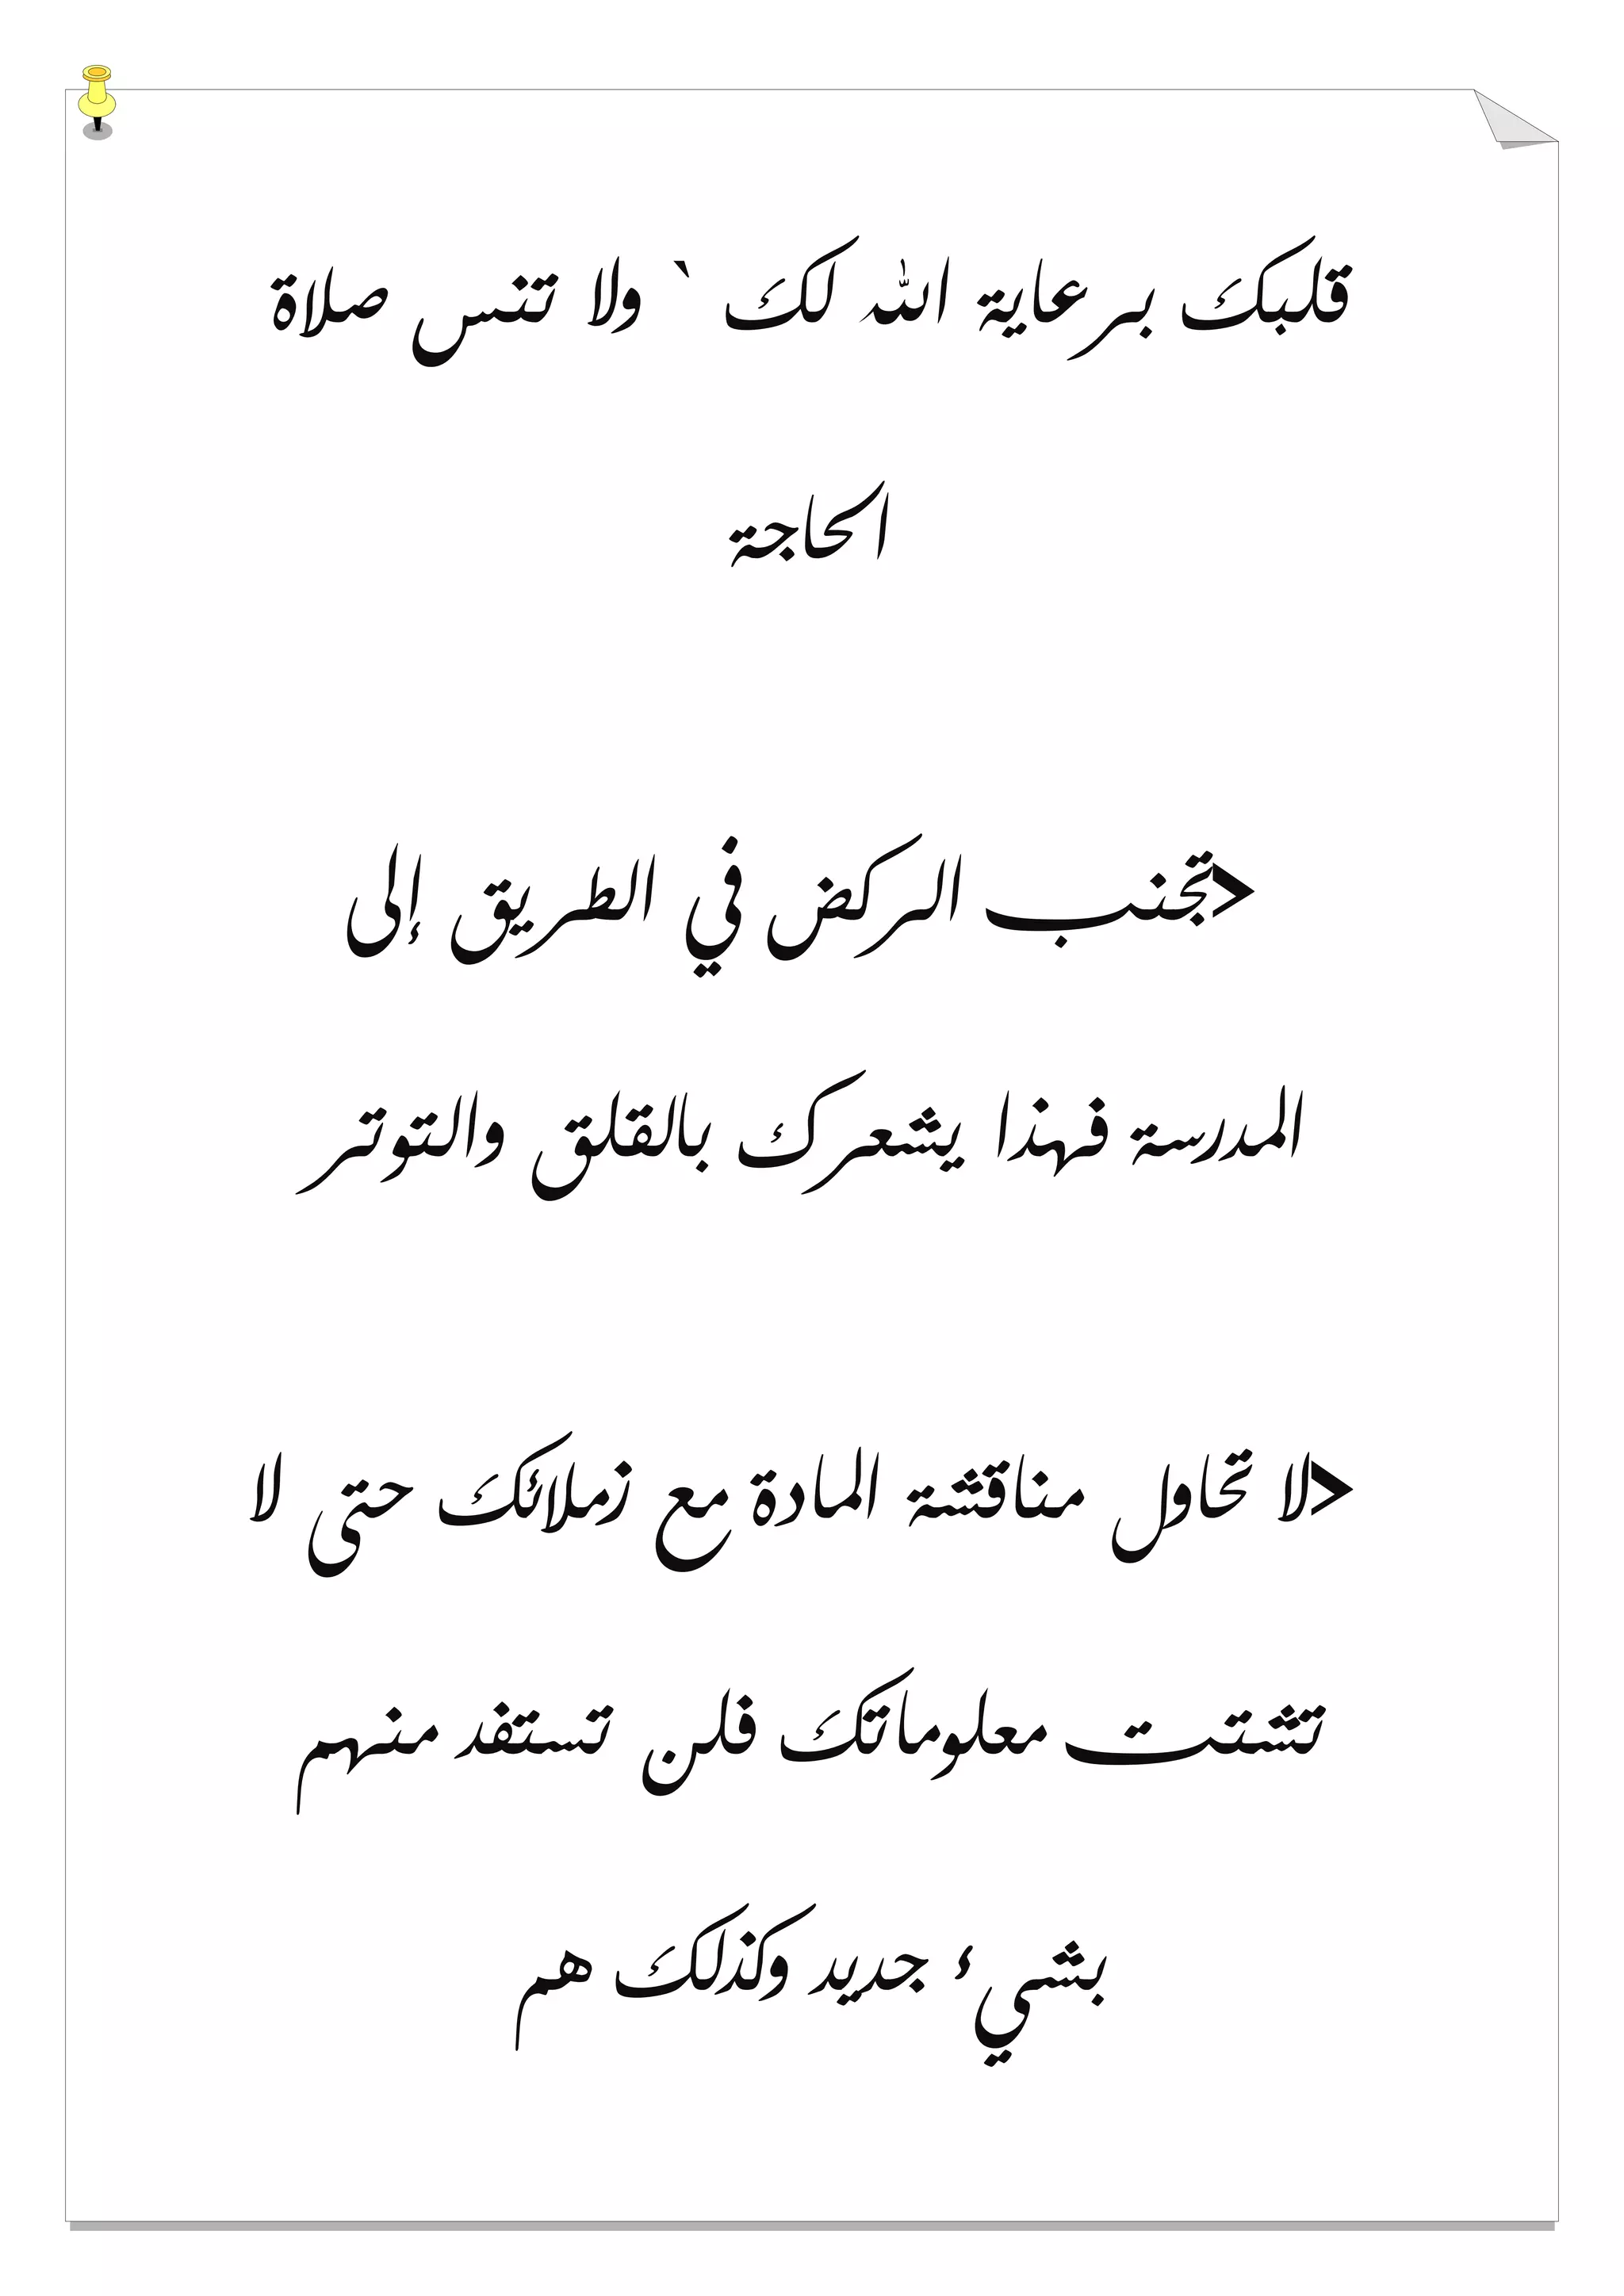 قلبك برعاية الله لك ` ولا تنس صلاة
الحاجة
➢تجنب الركض في الطريق إلى
المدرسة فهذا يشعرك بالقلق والتوتر
➢لا تحاول مناقشة المادة مع زملائك حتى لا
تتشتت معلوماتك فلن تستفد منهم
بشيء جديد وكذلك هم